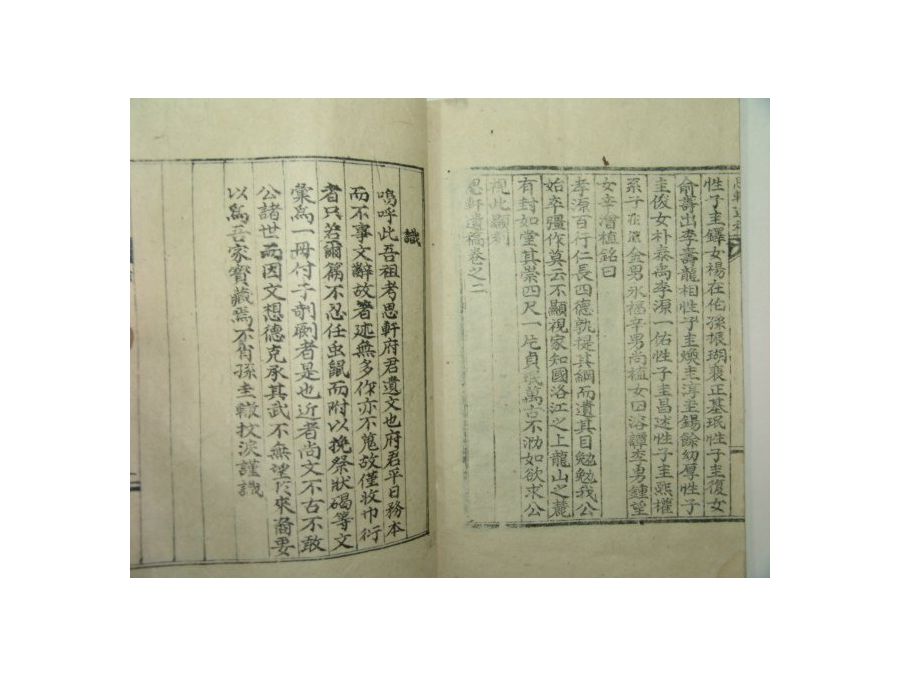 性子圭鐸女楊在伦孫振瑚裵正基珉性子圭復女
俞壽出李壽龍相性子圭煥圭淳圭錫餘幼厚性子
圭俊女朴泰尚李源一佑性子圭昌述性子圭熙權
系子在 金男永福辛男尚植女田溶譚李男鍾望
女辛澮植銘曰
孝源百行仁長四德孰提其綱而遺其目勉勉我公
始卒彊作莫云不顯視家知國洛江之上龍山之麓
有封如堂其崇四尺一片貞珉萬古不泐如欲求公
視此顯刻
思軒遺稿卷之二
識
嗚呼此吾祖考思軒府君遺文也府君平日務本
而不事文辭故著述無多作亦不蒐故僅收巾衍
者只若爾篇不忍任虫鼠而附以挽祭狀碣等文
彙為一冊付于剞劂者是也近者尚文不古不敢
公諸世而因文想德克承其武不無望於來裔要
以為吾家寶藏焉不肖孫圭轍抆淚謹識